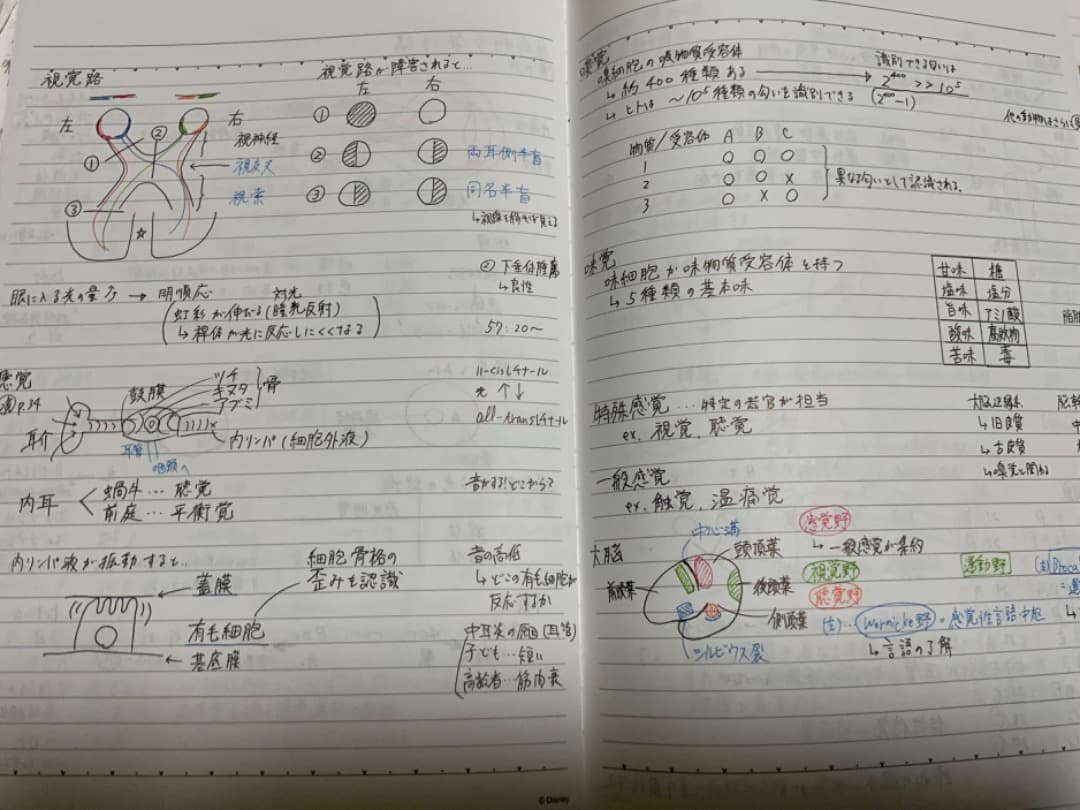 視覚路
視覚路が障害されると…
左 右
左 右
① ② ③
視神経
視交叉
視索
①
②
両耳側半盲
③
同名半盲
② 下垂体腫瘍
↳ 良性
眼に入る光の量 → 明順応
対光
虹彩が伸びる(瞳孔反射)
↳ 桿体が光に反応しにくくなる
57:20〜
11-cisレチナール
光 ↑↓
all-transレチナール
p.34
鼓膜
ツチ
キヌタ
アブミ
骨
耳介
耳管
咽頭へ
内リンパ(細胞外液)
内耳
蝸牛… 聴覚
前庭… 平衡覚
音がする!どこから?
内リンパ液が振動すると…
細胞骨格の
歪みを認識
蓋膜
有毛細胞
基底膜
音の高低
↳ どこの有毛細胞が
反応するか
中耳炎の原因(耳管)
子ども… 短い
高齢者… 筋肉衰
© Disney
嗅覚
嗅細胞の嗅物質受容体
↳ 約400種類ある
識別できる匂いは
2^400 >> 10^5
(2^400-1)
↳ ヒトは 〜10^5種類の匂いを識別できる
物質/受容体 A B C
1 ○ ○ ○
2 ○ ○ ×
3 ○ × ○
異なる匂いとして認識される.
味覚
味細胞が味物質受容体を持つ
↳ 5種類の基本味
甘味 糖
塩味 塩分
旨味 アミノ酸
酸味 腐敗物
苦味 毒
特殊感覚 … 特定の器官が担当
ex. 視覚, 聴覚
大脳辺縁系
↳ 旧皮質
↳ 古皮質
↳ 嗅覚に関わる
一般感覚
ex. 触覚, 温痛覚
大脳
中心溝
感覚野
頭頂葉
↳ 一般感覚が集約
前頭葉
視覚野
運動野
後頭葉
聴覚野
側頭葉
(左)… Wernicke野 = 感覚性言語中枢
↳ 言語の了解
シルビウス裂